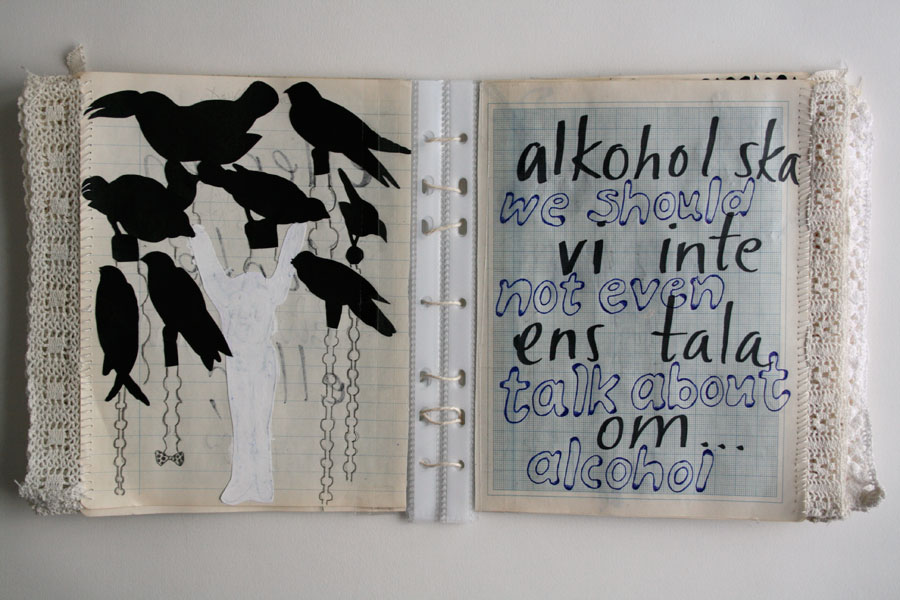 alkohol ska
we should
vi inte
not even
ens tala
talk about
om...
alcohol